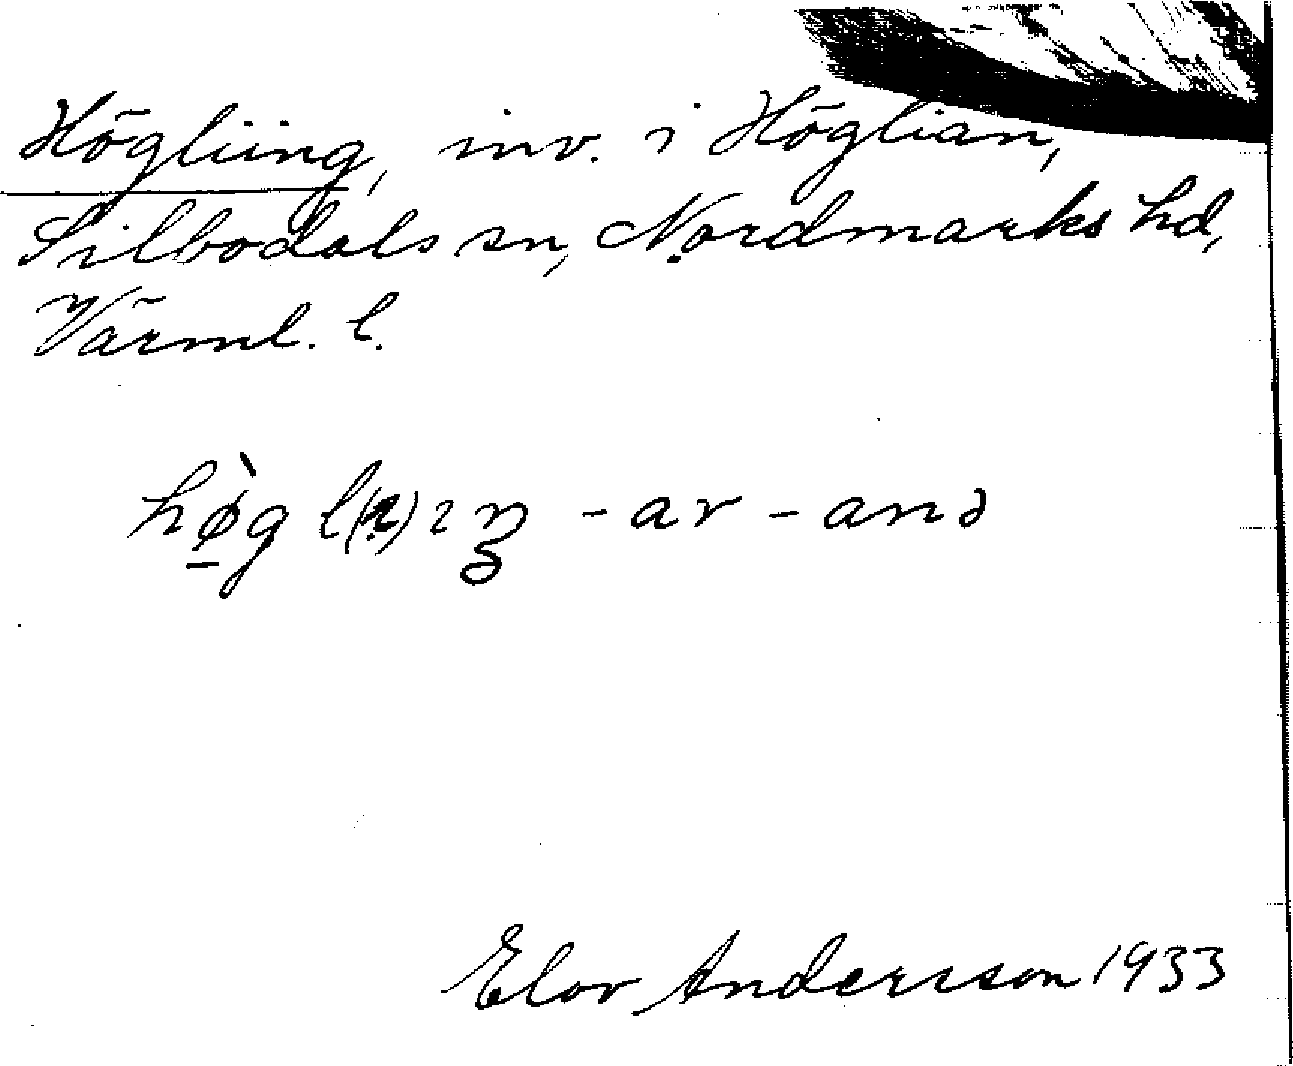 Högliing, inv. i Höglian,
Silbodals sn, Nordmarks hd,
Värml. l.
hø̀g l(ı)ıŋ -ar -anə
Elov Andersson 1933